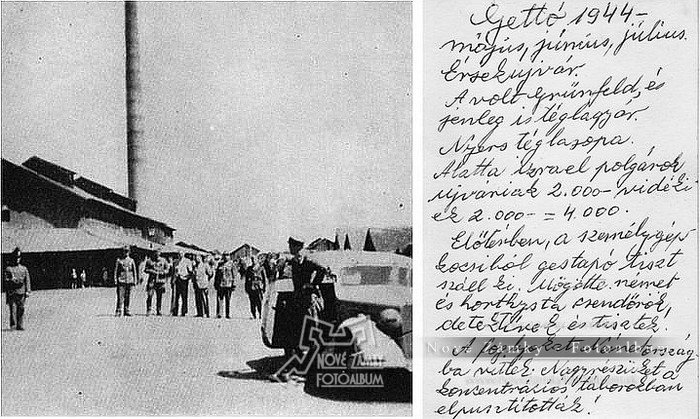 Gettó 1944-
május, június, július.
Érsekujvár.
A volt Grünfeld, és
jenleg is téglagyár.
Nyers téglasopa.
Alatta izrael polgárok
ujváriak 2.000- vidéki
ek 2.000- = 4.000.
Előtérben, a személygép-
kocsiból gestapó tiszt
száll ki. Mögötte német
és horthysta csendőrök,
detektivek, és tisztek.
A foglyokat Németország
ba vitték. Nagyrészüket a
koncentrációs táborokban
elpusztították!
NOVÉ ZÁMKY
FOTOALBUM
Nové Zámky - Fotoalbum